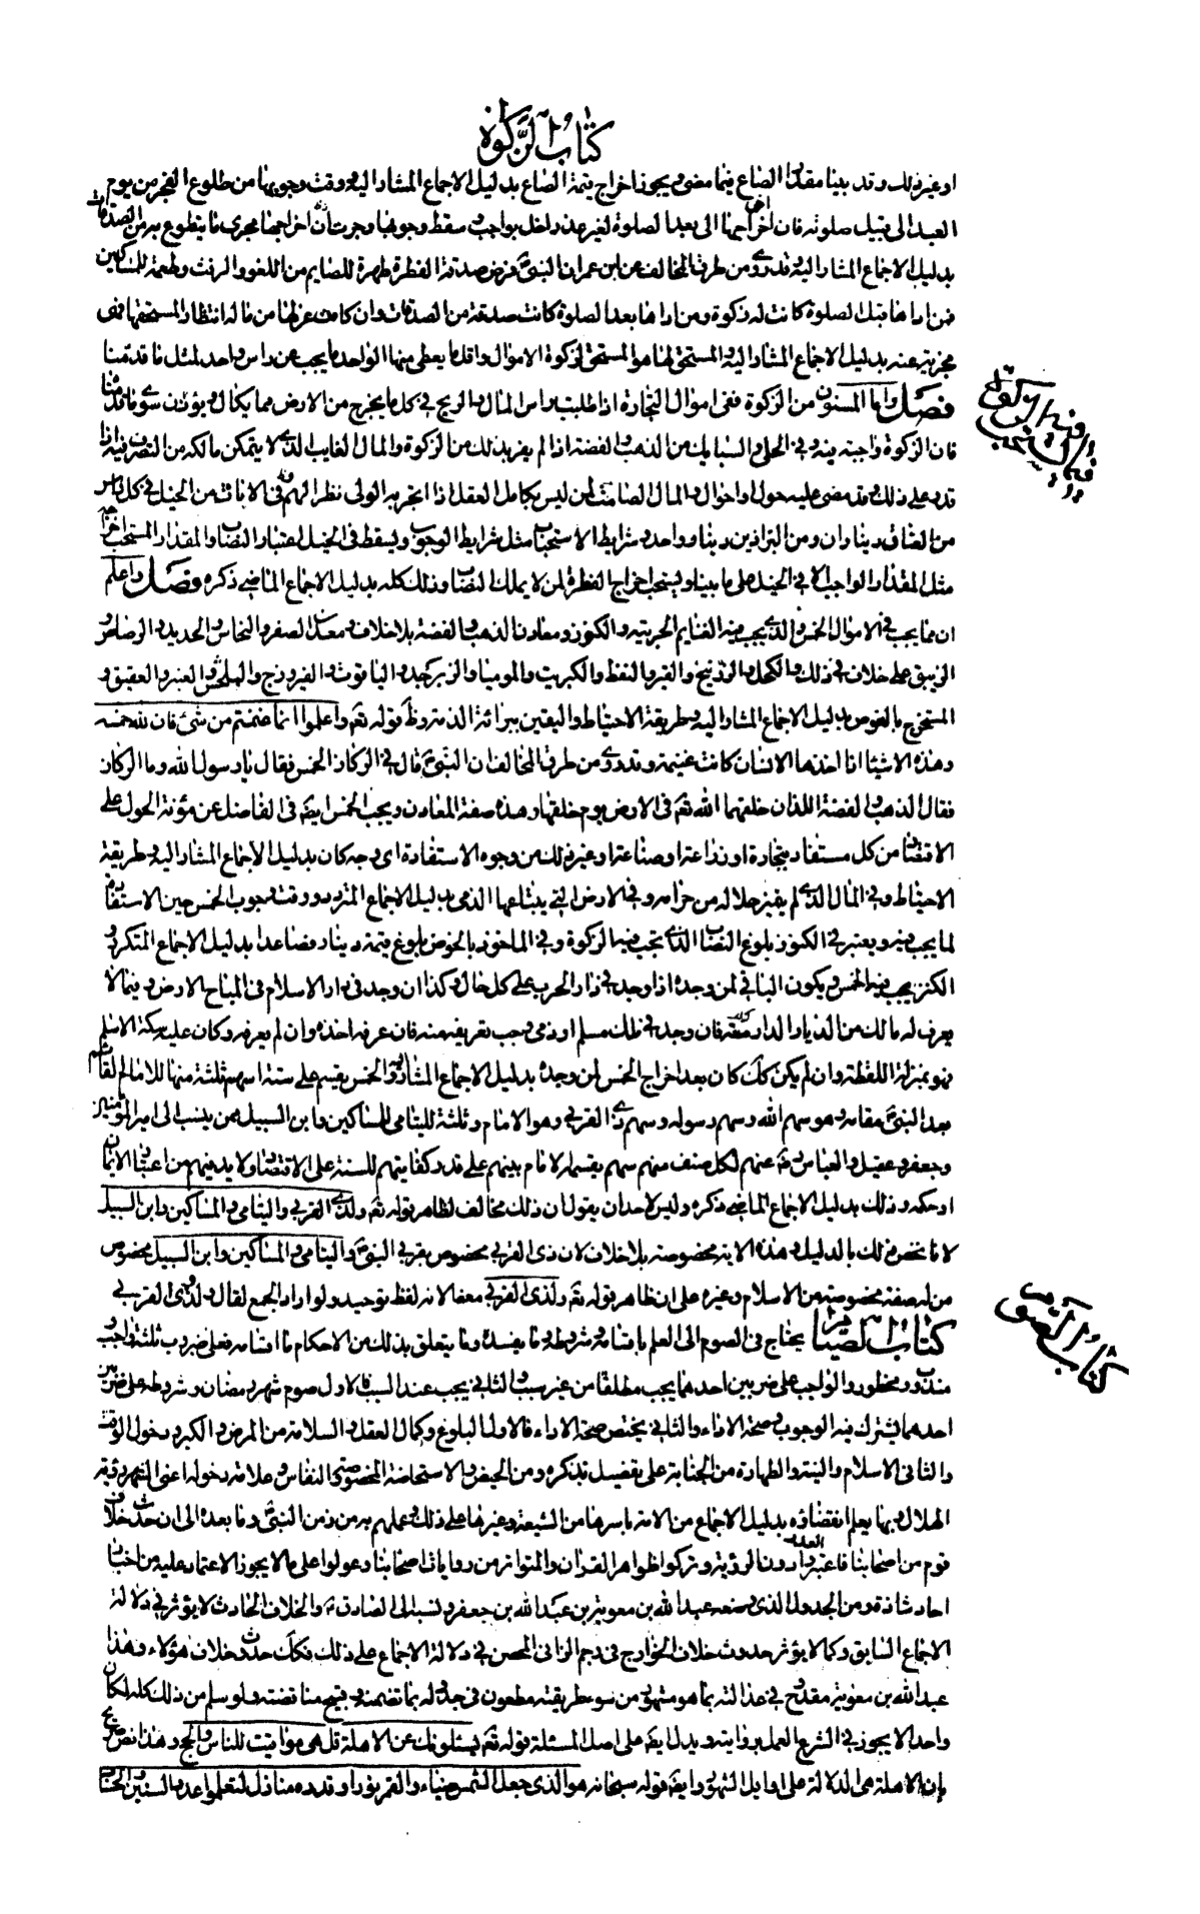 كتاب الزكوة
او غير ذلك وقد بينا مقدار الصاع فيما مضى ويجوز اخراج قيمة الصاع بدليل الاجماع المشار اليه ووقت وجوبها من طلوع الفجر من يوم
العيد الى قبيل صلوته فان اخر اخراجها الى بعد الصلوة لغير عذر اخل بواجب وسقط وجوبها وجرت ان اخراجها مجرى ما يتطوع به من الصدقات
بدليل الاجماع المشار اليه وقد روى من طرق المخالف عن ابن عمر ان النبى ص فرض صدقة الفطرة طهرة للصايم من اللغو والرفث وطعمة للمساكين
فمن اداها قبل الصلوة كانت له زكوة ومن اداها بعد الصلوة كانت صدقة من الصدقات وان كانت عزلها من ماله انتظار المستحقها فهى
مجزية عنه بدليل الاجماع المشار اليه والمستحق لها هو المستحق لزكوة الاموال واقل ما يعطى منها الواحد ما يجب عن راس واحد لمثل ما قدمنا
فصل واما المسنون من الزكوة ففى اموال التجارة اذا طلبت براس المال او الربح وفي كل ما يخرج من الارض مما يكال ويوزن سوى ما قدمنا
فان الزكوة واجبة فيه وفي الحلى والسبايك من الذهب والفضة اذا لم يفر بذلك من الزكوة والمال الغايب الذى لا يتمكن مالكه من التصرف فيه اذا
قدر على ذلك وقد مضى عليه حول او احوال والمال الصامت لمن ليس بكامل العقل اذا اتجر به الولى نظرا لهم وفى الاناث من الخيل في كل راس
من العتاق ديناران ومن البراذين دينار واحد وشرايط الاستحباب مثل شرايط الوجوب ويسقط فى الخيل اعتبار النصاب والمقدار المستحب اخراجه
مثل المقدار الواجب الا في الخيل على ما بيناه ويستحب اخراج الفطرة لمن لا يملك النصاب وذلك كله بدليل الاجماع الماضى ذكره فصل واعلم
ان مما يجب في الاموال الخمس والذى يجب فيه الغنايم الحربية والكنوز ومعادن الذهب والفضة بلا خلاف ومعادن الصفر والنحاس والحديد والرصاص و
الزيبق على خلاف في ذلك والكحل والزرنيخ والقير والنفط والكبريت والموميا والزبرجد والياقوت والفيروزج والبلخش والعنبر والعقيق و
المستخرج بالغوص بدليل الاجماع المشار اليه وطريقة الاحتياط واليقين ببرائة الذمة وظ قوله تعه واعلموا انما غنمتم من شئ فان لله خمسه
وهذه الاشياء اذا اخذها الانسان كانت غنيمة وقد روى من طرق المخالف ان النبى ص قال في الركاز الخمس فقال يا رسول الله وما الركاز
فقال الذهب والفضة اللذان خلقهما الله تعه فى الارض يوم خلقها وهذه صفة المعادن ويجب الخمس ايضه فى الفاضل عن مؤنة الحول على
الاقتصاد من كل مستفاد بتجارة او زراعة او صناعة او غير ذلك من وجوه الاستفادة اى وجه كان بدليل الاجماع المشار اليه وطريقة
الاحتياط وفي المال الذى لم يتميز حلاله من حرامه وفي الارض التى يبتاعها الذمى بدليل الاجماع المتردد ووقت وجوب الخمس حين الاستفادة
لما يجب فيه ويعتبر في الكنوز بلوغ النصاب الذى تجب فيه الزكوة وفي الماخوذ بالغوص بلوغ قيمة دينار فصاعدا بدليل الاجماع المتكرر و
الكنز يجب فيه الخمس ويكون الباقى لمن وجده اذا وجد في دار الحرب على كل حال وكذا ان وجد فى دار الاسلام فى المباح الارض وفيما لا
يعرف له مالك من الديار الدارسة فان وجد في ملك مسلم او ذمى وجب تعريفه منه فان عرفه اخذه وان لم يعرفه وكان عليه سكة الاسلام
فهو بمنزلة اللقطة وان لم يكن كك كان بعد اخراج الخمس لمن وجده بدليل الاجماع المشار اليه والخمس يقسم على ستة اسهم ثلثة منها للامام القائم
بعد النبى ص مقامه وهو سهم الله وسهم رسوله وسهم ذى القربى وهو الامام وثلثة لليتامى والمساكين وابن السبيل ممن ينسب الى امير المؤمنين
وجعفر وعقيل والعباس رض عنهم لكل صنف منهم سهم يقسمه الامام بينهم على قدر كفايتهم للسنة على الاقتصاد ولا بد فيهم من اعتبار الايمان
او حكمه وذلك بدليل الاجماع الماضى ذكره وليس لاحد ان يقول ان ذلك مخالف لظاهر قوله تعه ولذى القربى واليتامى والمساكين وابن السبيل
لانا نخص ذلك بالدليل وهذه الاية مخصوصة بلا خلاف لان ذى القربى مخصوص بقربى النبى ص واليتامى والمساكين وابن السبيل مخصوص
من له صفة مخصوصة من الاسلام وغيره على ان ظاهر قوله تعه ولذى القربى معنا لانه لفظ توحيد ولو اراد الجمع لقال ولذوى القربى
كتاب الصيام يحتاج فى الصوم الى العلم باقسامه وشروطه وما يفسده وما يتعلق بذلك من الاحكام فاما اقسامه فعلى ضروب ثلثة واجب و
مندوب ومحظور والواجب على ضربين احدهما يجب مطلقا من غير سبب والثانى يجب عند السبب فالاول صوم شهر رمضان وشروطه على ضربين
احدهما يشترك فيه الوجوب وصحة الاداء والثانى يختص صحة الاداء فالاول البلوغ وكمال العقل والسلامة من المرض والكبر ودخول الوقت
والثانى الاسلام والنية والطهارة من الجنابة على تفصيل نذكره ومن الحيض والاستحاضة المخصوصة والنفاس وعلامة دخوله اعنى الشهر رؤية
الهلال وبها يعلم انقضاؤه بدليل الاجماع من الامة باسرها من الشيعة وغيرها على ذلك وعملهم به من زمن النبى ص وما بعده الى ان حدث خلاف
قوم من اصحابنا فاعتبروا العدد دون الرؤية وتركوا ظواهر القران والمتواتر من روايات اصحابنا وعولوا على ما لا يجوز الاعتماد عليه من اخبار
احاد شاذة ومن الجدول الذى وضعه عبد الله بن معوية بن عبد الله بن جعفر ونسبه الى الصادق ع والخلاف الحادث لا يؤثر في دلالة
الاجماع السابق وكما لا يؤثر حدوث خلاف الخوارج في رجم الزانى المحصن في دلالة الاجماع على ذلك فكك حدوث خلاف هؤلاء وهذا
عبد الله بن معوية مقدوح في عدالته بما هو مشهور من سوء طريقته مطعون فى جدوله بما تضمنه وقبيح مناقضته ولو سلم من ذلك كله لكان
واحدا لا يجوز في الشرع العمل بروايته ويدل ايضه على اصل المسئلة قوله تعه يسئلونك عن الاهلة قل هى مواقيت للناس والحج وهذا نص صريح
بان الاهلة هى الدلالة على اوايل الشهور وايضه قوله سبحانه هو الذى جعل الشمس ضياء والقمر نورا وقدره منازل لتعلموا عدد السنين والحساب
كتاب الصوم